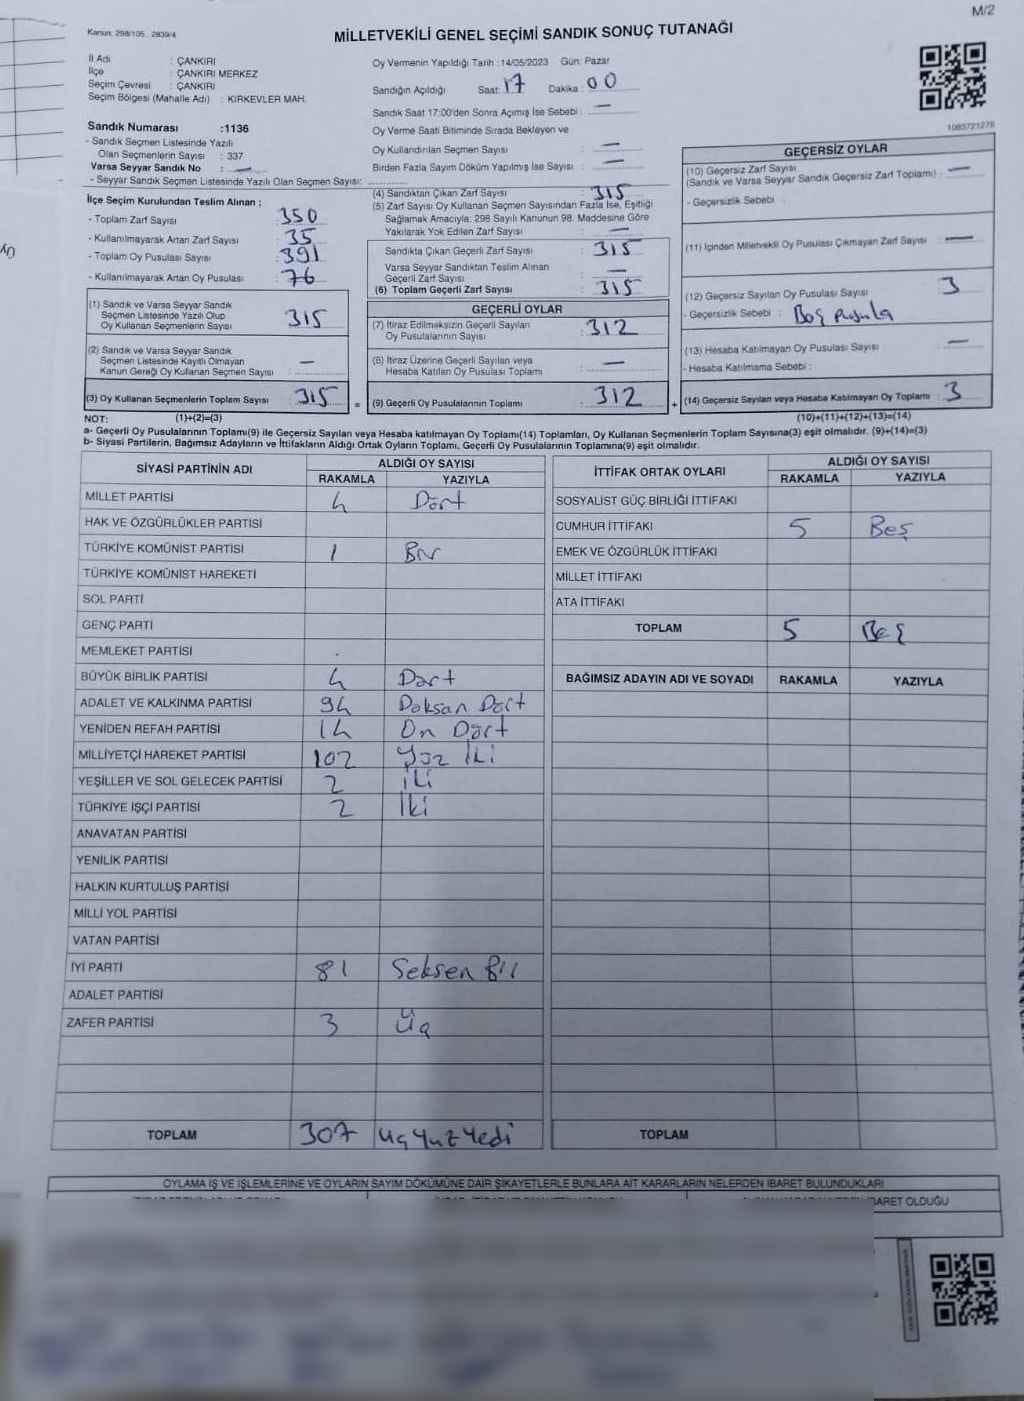 M/2
Kanun: 298/105, 2839/4
MİLLETVEKİLİ GENEL SEÇİMİ SANDIK SONUÇ TUTANAĞI
İl Adı : ÇANKIRI
İlçe : ÇANKIRI MERKEZ
Seçim Çevresi : ÇANKIRI
Seçim Bölgesi (Mahalle Adı) : KIRKEVLER MAH.
Sandık Numarası :1136
- Sandık Seçmen Listesinde Yazılı
Olan Seçmenlerin Sayısı : 337
Varsa Seyyar Sandık No : —
- Seyyar Sandık Seçmen Listesinde Yazılı Olan Seçmen Sayısı:
İlçe Seçim Kurulundan Teslim Alınan ;
- Toplam Zarf Sayısı : 350
- Kullanılmayarak Artan Zarf Sayısı : 35
- Toplam Oy Pusulası Sayısı : 391
- Kullanılmayarak Artan Oy Pusulası : 76
(1) Sandık ve Varsa Seyyar Sandık
Seçmen Listesinde Yazılı Olup
Oy Kullanan Seçmenlerin Sayısı : 315
(2) Sandık ve Varsa Seyyar Sandık
Seçmen Listesinde Kayıtlı Olmayan
Kanun Gereği Oy Kullanan Seçmen Sayısı : —
(3) Oy Kullanan Seçmenlerin Toplam Sayısı : 315
Oy Vermenin Yapıldığı Tarih :14/05/2023 Gün: Pazar
Sandığın Açıldığı Saat: 17 Dakika : 00
Sandık Saat 17:00'den Sonra Açılmış İse Sebebi : —
Oy Verme Saati Bitiminde Sırada Bekleyen ve
Oy Kullandırılan Seçmen Sayısı : —
Birden Fazla Sayım Döküm Yapılmış İse Sayısı : —
(4) Sandıktan Çıkan Zarf Sayısı : 315
(5) Zarf Sayısı Oy Kullanan Seçmen Sayısından Fazla İse, Eşitliği
Sağlamak Amacıyla; 298 Sayılı Kanunun 98. Maddesine Göre
Yakılarak Yok Edilen Zarf Sayısı : —
Sandıkta Çıkan Geçerli Zarf Sayısı : 315
Varsa Seyyar Sandıktan Teslim Alınan
Geçerli Zarf Sayısı : —
(6) Toplam Geçerli Zarf Sayısı : 315
GEÇERLİ OYLAR
(7) İtiraz Edilmeksizin Geçerli Sayılan
Oy Pusulalarının Sayısı : 312
(8) İtiraz Üzerine Geçerli Sayılan veya
Hesaba Katılan Oy Pusulası Toplamı : —
= (9) Geçerli Oy Pusulalarının Toplamı : 312
1083721278
GEÇERSİZ OYLAR
(10) Geçersiz Zarf Sayısı
(Sandık ve Varsa Seyyar Sandık Geçersiz Zarf Toplamı) : —
- Geçersizlik Sebebi :
(11) İçinden Milletvekili Oy Pusulası Çıkmayan Zarf Sayısı : —
(12) Geçersiz Sayılan Oy Pusulası Sayısı : 3
- Geçersizlik Sebebi : Boş Pusula
(13) Hesaba Katılmayan Oy Pusulası Sayısı : —
- Hesaba Katılmama Sebebi :
+ (14) Geçersiz Sayılan veya Hesaba Katılmayan Oy Toplamı : 3
NOT: (1)+(2)=(3) (10)+(11)+(12)+(13)=(14)
a- Geçerli Oy Pusulalarının Toplamı(9) ile Geçersiz Sayılan veya Hesaba katılmayan Oy Toplamı(14) Toplamları, Oy Kullanan Seçmenlerin Toplam Sayısına(3) eşit olmalıdır. (9)+(14)=(3)
b- Siyasi Partilerin, Bağımsız Adayların ve İttifakların Aldığı Ortak Oyların Toplamı, Geçerli Oy Pusulalarının Toplamına(9) eşit olmalıdır.
SİYASİ PARTİNİN ADI ALDIĞI OY SAYISI
RAKAMLA YAZIYLA
MİLLET PARTİSİ 4 Dört
HAK VE ÖZGÜRLÜKLER PARTİSİ
TÜRKİYE KOMÜNİST PARTİSİ 1 Bir
TÜRKİYE KOMÜNİST HAREKETİ
SOL PARTİ
GENÇ PARTİ
MEMLEKET PARTİSİ
BÜYÜK BİRLİK PARTİSİ 4 Dört
ADALET VE KALKINMA PARTİSİ 94 Doksan Dört
YENİDEN REFAH PARTİSİ 14 On Dört
MİLLİYETÇİ HAREKET PARTİSİ 102 Yüz İki
YEŞİLLER VE SOL GELECEK PARTİSİ 2 İki
TÜRKİYE İŞÇİ PARTİSİ 2 İki
ANAVATAN PARTİSİ
YENİLİK PARTİSİ
HALKIN KURTULUŞ PARTİSİ
MİLLİ YOL PARTİSİ
VATAN PARTİSİ
İYİ PARTİ 81 Seksen Bir
ADALET PARTİSİ
ZAFER PARTİSİ 3 Üç
TOPLAM 307 Üç Yüz Yedi
İTTİFAK ORTAK OYLARI ALDIĞI OY SAYISI
RAKAMLA YAZIYLA
SOSYALİST GÜÇ BİRLİĞİ İTTİFAKI
CUMHUR İTTİFAKI 5 Beş
EMEK VE ÖZGÜRLÜK İTTİFAKI
MİLLET İTTİFAKI
ATA İTTİFAKI
TOPLAM 5 Beş
BAĞIMSIZ ADAYIN ADI VE SOYADI RAKAMLA YAZIYLA
TOPLAM
OYLAMA İŞ VE İŞLEMLERİNE VE OYLARIN SAYIM DÖKÜMÜNE DAİR ŞİKAYETLERLE BUNLARA AİT KARARLARIN NELERDEN İBARET BULUNDUKLARI
OLDUĞU